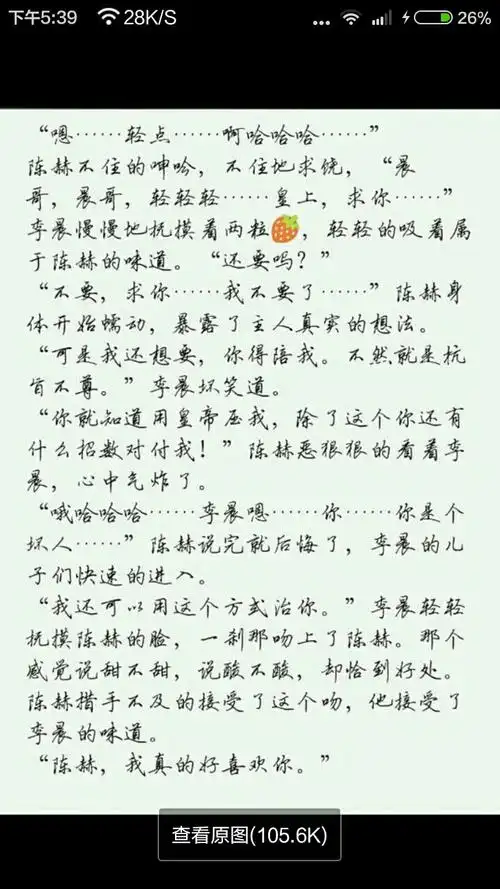 下午5:39 28K/S ... 26%
“嗯……轻点……啊哈哈哈……”
陈赫不住的呻吟，不住地求饶，“晨
哥，晨哥，轻轻轻……皇上，求你……”
李晨慢慢地抚摸着两粒🍓，轻轻的吸着属
于陈赫的味道。“还要吗？”
“不要，求你……我不要了……”陈赫身
体开始蠕动，暴露了主人真实的想法。
“可是我还想要，你得陪我。不然就是抗
旨不尊。”李晨坏笑道。
“你就知道用皇帝压我，除了这个你还有
什么招数对付我！”陈赫恶狠狠的看着李
晨，心中气炸了。
“哦哈哈哈……李晨嗯……你……你是个
坏人……”陈赫说完就后悔了，李晨的儿
子们快速的进入。
“我还可以用这个方式治你。”李晨轻轻
抚摸陈赫的脸，一刹那吻上了陈赫。那个
感觉说甜不甜，说酸不酸，却恰到好处。
陈赫措手不及的接受了这个吻，他接受了
李晨的味道。
“陈赫，我真的好喜欢你。”
查看原图(105.6K)